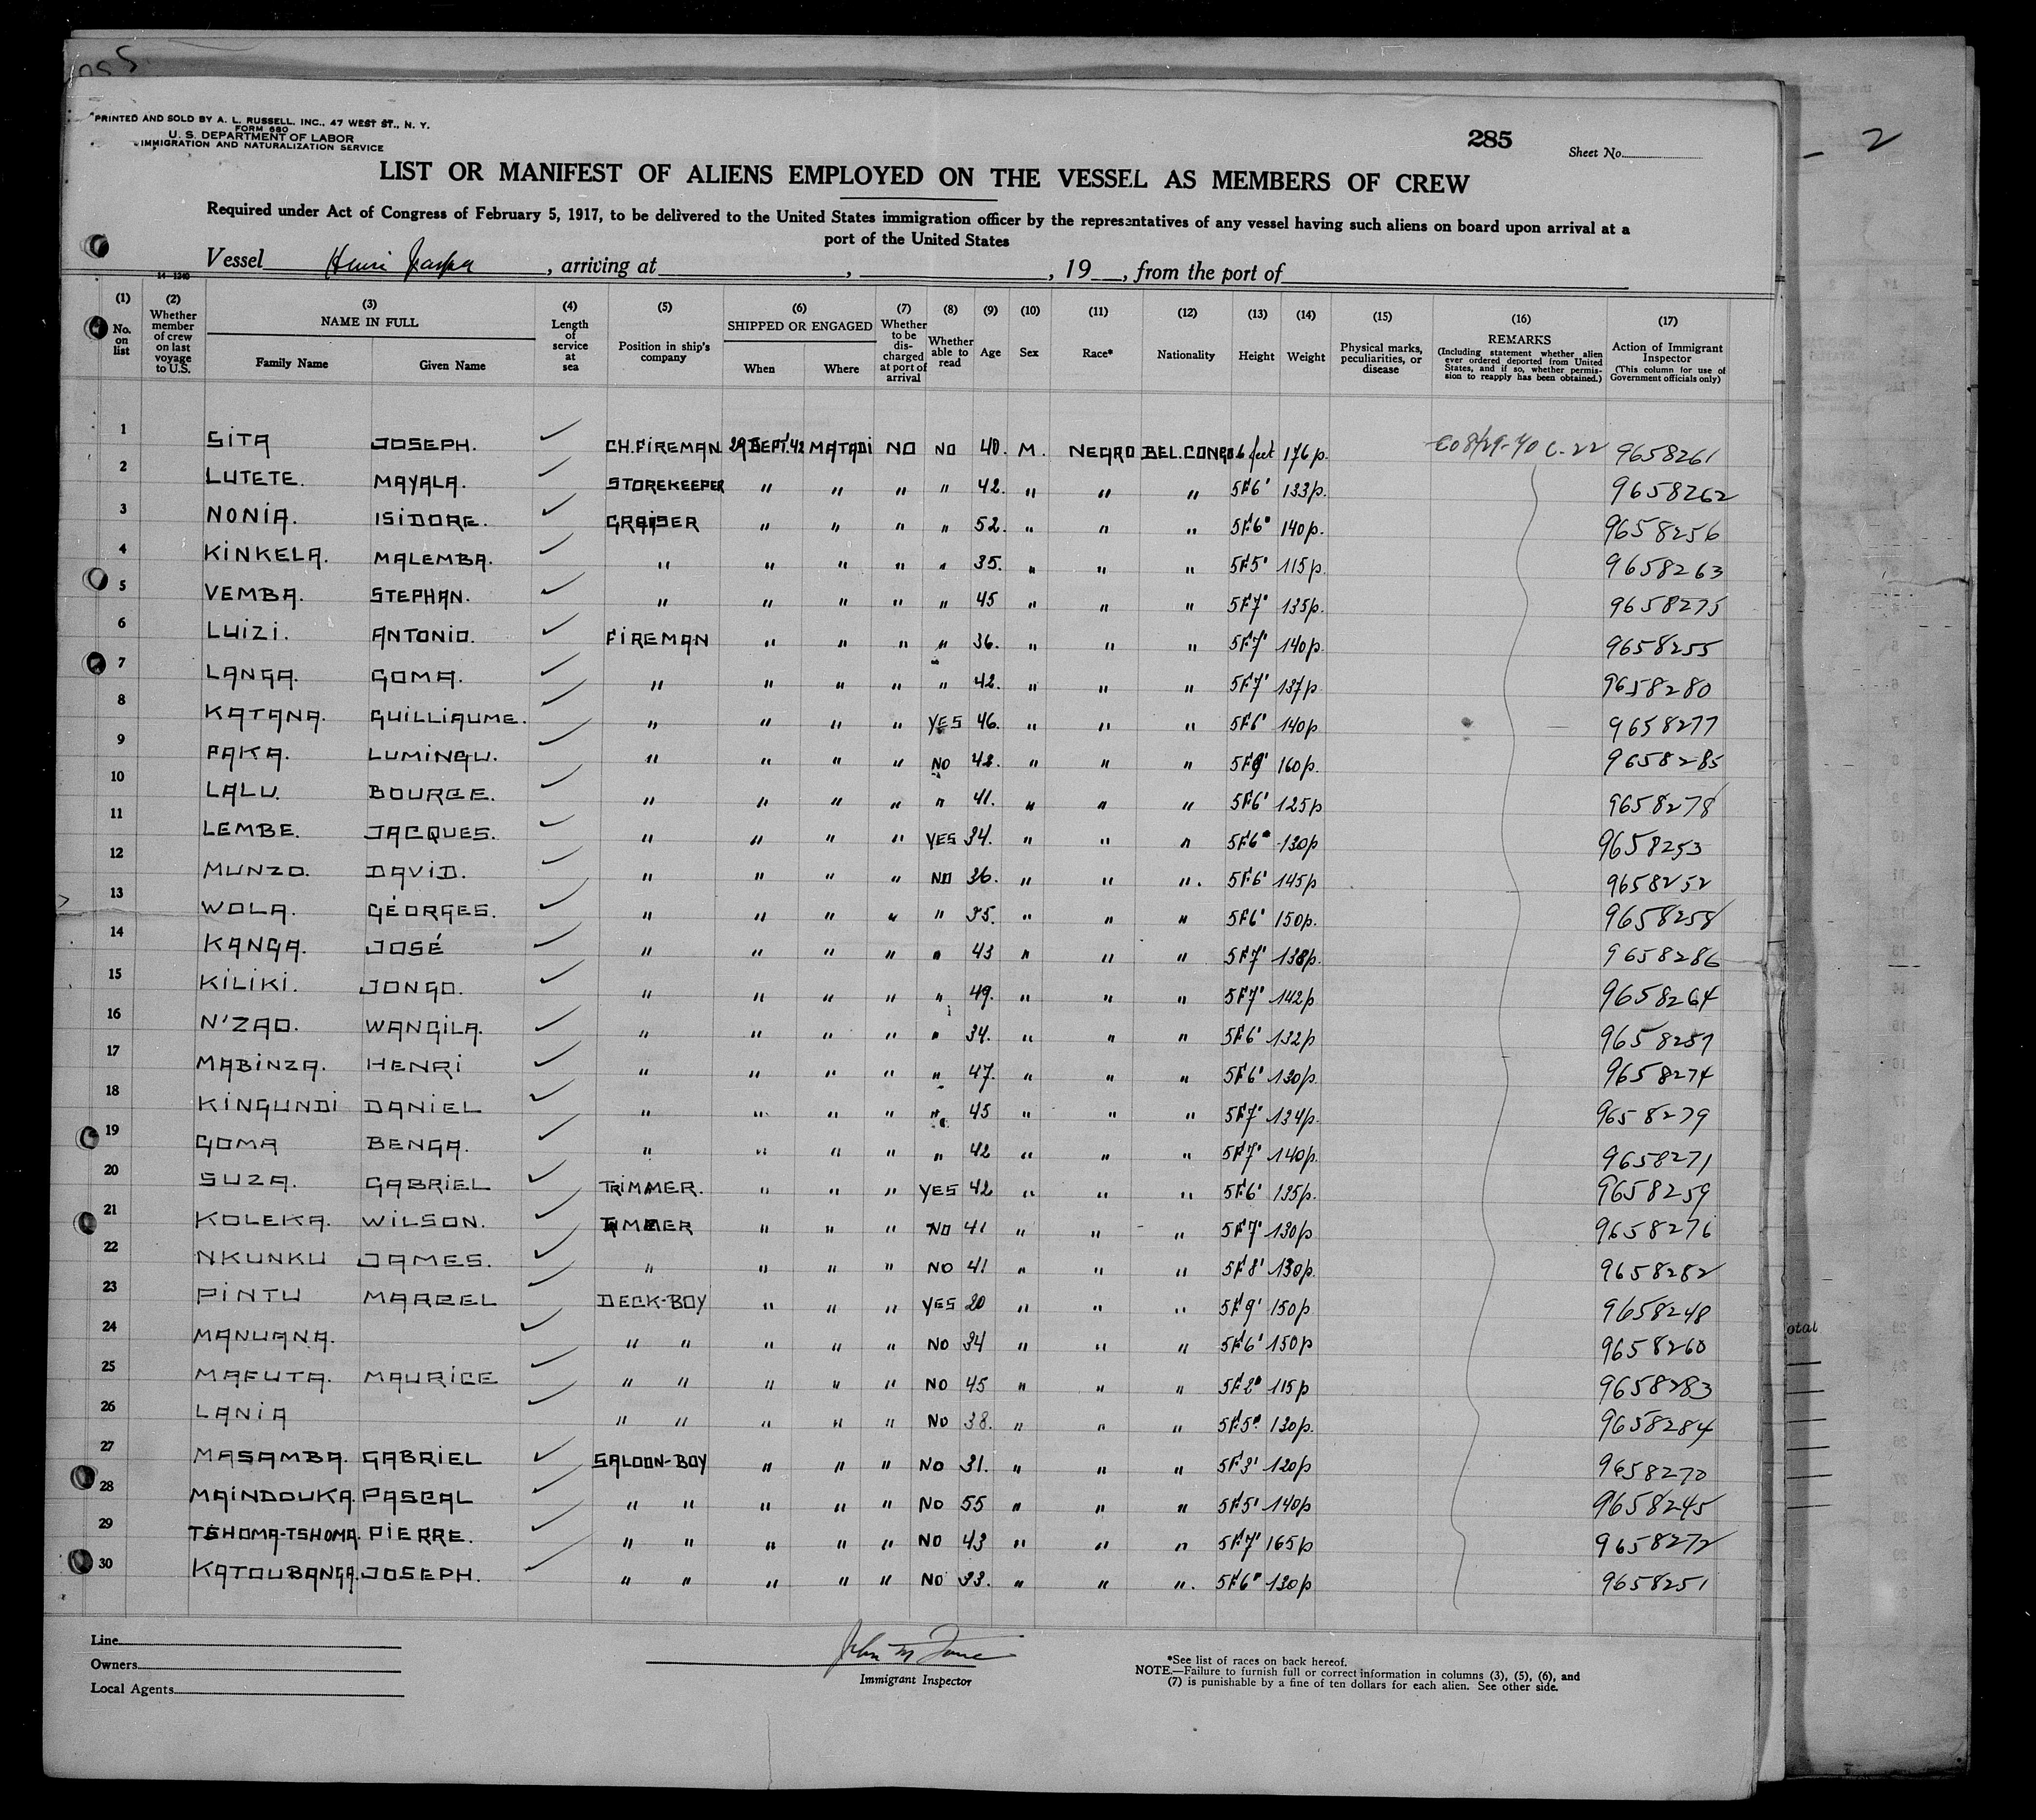 PRINTED AND SOLD BY A. L. RUSSELL, INC., 47 WEST ST., N. Y.
FORM 680
U. S. DEPARTMENT OF LABOR
IMMIGRATION AND NATURALIZATION SERVICE
285
Sheet No.
2
LIST OR MANIFEST OF ALIENS EMPLOYED ON THE VESSEL AS MEMBERS OF CREW
Required under Act of Congress of February 5, 1917, to be delivered to the United States immigration officer by the representatives of any vessel having such aliens on board upon arrival at a
port of the United States
Vessel Henri Jaspar, arriving at , , 19 , from the port of
14-1240
(1) No. on list (2) Whether member of crew on last voyage to U.S. (3) NAME IN FULL Family Name Given Name (4) Length of service at sea (5) Position in ship's company (6) SHIPPED OR ENGAGED When Where (7) Whether to be discharged at port of arrival (8) Whether able to read (9) Age (10) Sex (11) Race* (12) Nationality (13) Height (14) Weight (15) Physical marks, peculiarities, or disease (16) REMARKS (Including statement whether alien ever ordered deported from United States, and if so, whether permission to reapply has been obtained.) (17) Action of Immigrant Inspector (This column for use of Government officials only)
1 SITA JOSEPH. ✓ CH.FIREMAN 29 SEPT.42 MATADI NO NO 40. M. NEGRO BEL.CONGO 6 feet 176 p. 9658261
2 LUTETE. MAYALA. ✓ STOREKEEPER " " " " 42. " " " 5F6' 133p. 9658262
3 NONIA. ISIDORE. ✓ GRAISER " " " " 52. " " " 5F.6" 140p. 9658256
4 KINKELA. MALEMBA. ✓ " " " " " 35. " " " 5F5' 115p. 9658263
5 VEMBA. STEPHAN. ✓ " " " " " 45 " " " 5F7" 135p. 9658275
6 LUIZI. ANTONIO. ✓ FIREMAN " " " " 36. " " " 5F.7' 140p. 9658255
7 LANGA. GOMA. ✓ " " " " " 42. " " " 5F.7' 137p 9658280
8 KATANA. GUILLIAUME. ✓ " " " " YES 46. " " " 5F6' 140p 9658277
9 PAKA. LUMINGU. ✓ " " " " NO 42. " " " 5F9' 160p. 9658285
10 LALU. BOURGE. ✓ " " " " " 41. " " " 5F.6' 125p 9658278
11 LEMBE. JACQUES. ✓ " " " " YES 34. " " " 5F.6" 130p 9658253
12 MUNZO. DAVID. ✓ " " " " NO 36. " " ". 5F.6' 145p 9658252
13 WOLA. GÉORGES. ✓ " " " " " 35. " " " 5F6' 150p. 9658258
14 KANGA. JOSÉ ✓ " " " " " 43 " " " 5F.7' 138p. 9658286
15 KILIKI. JONGO. ✓ " " " " " 49. " " " 5F.7' 142p 9658264
16 N'ZAO. WANGILA. ✓ " " " " " 34. " " " 5F.6' 132p 9658257
17 MABINZA. HENRI ✓ " " " " " 47. " " " 5F.6' 130p. 9658274
18 KINGUNDI DANIEL ✓ " " " " " 45 " " " 5F.7' 134p. 9658279
19 GOMA BENGA. ✓ " " " " " 42 " " " 5F.7' 140p. 9658271
20 SUZA. GABRIEL ✓ TRIMMER. " " " YES 42 " " " 5F.6' 135p. 9658259
21 KOLEKA. WILSON. ✓ " " " NO 41 " " " 5F.7' 130p 9658276
22 NKUNKU JAMES. ✓ " " " " NO 41 " " " 5F.8' 130p. 9658282
23 PINTU MARCEL ✓ DECK-BOY " " " YES 20 " " " 5F.9' 150p 9658248
24 MANUANA. ✓ " " " " " NO 34 " " " 5F.6' 150p 9658260
25 MAFUTA. MAURICE ✓ " " " " " NO 45 " " " 115p 9658283
26 LANIA ✓ " " " " " NO 38. " " " 5F.5" 130p. 9658284
27 MASAMBA. GABRIEL ✓ SALOON-BOY " " " NO 31. " " " 5F.3' 120p 9658270
28 MAINDOUKA. PASCAL ✓ " " " " " NO 55 " " " 5F.5' 140p 9658245
29 TSHOMA-TSHOMA. PIERRE. ✓ " " " " " NO 43 " " " 5F.7' 165p 9658272
30 KATOUBANGA. JOSEPH. ✓ " " " " " NO 33. " " ". 5F.6" 130p 9658251
otal
Line
Owners
Local Agents
John M
Immigrant Inspector
*See list of races on back hereof.
NOTE.—Failure to furnish full or correct information in columns (3), (5), (6), and
(7) is punishable by a fine of ten dollars for each alien. See other side.